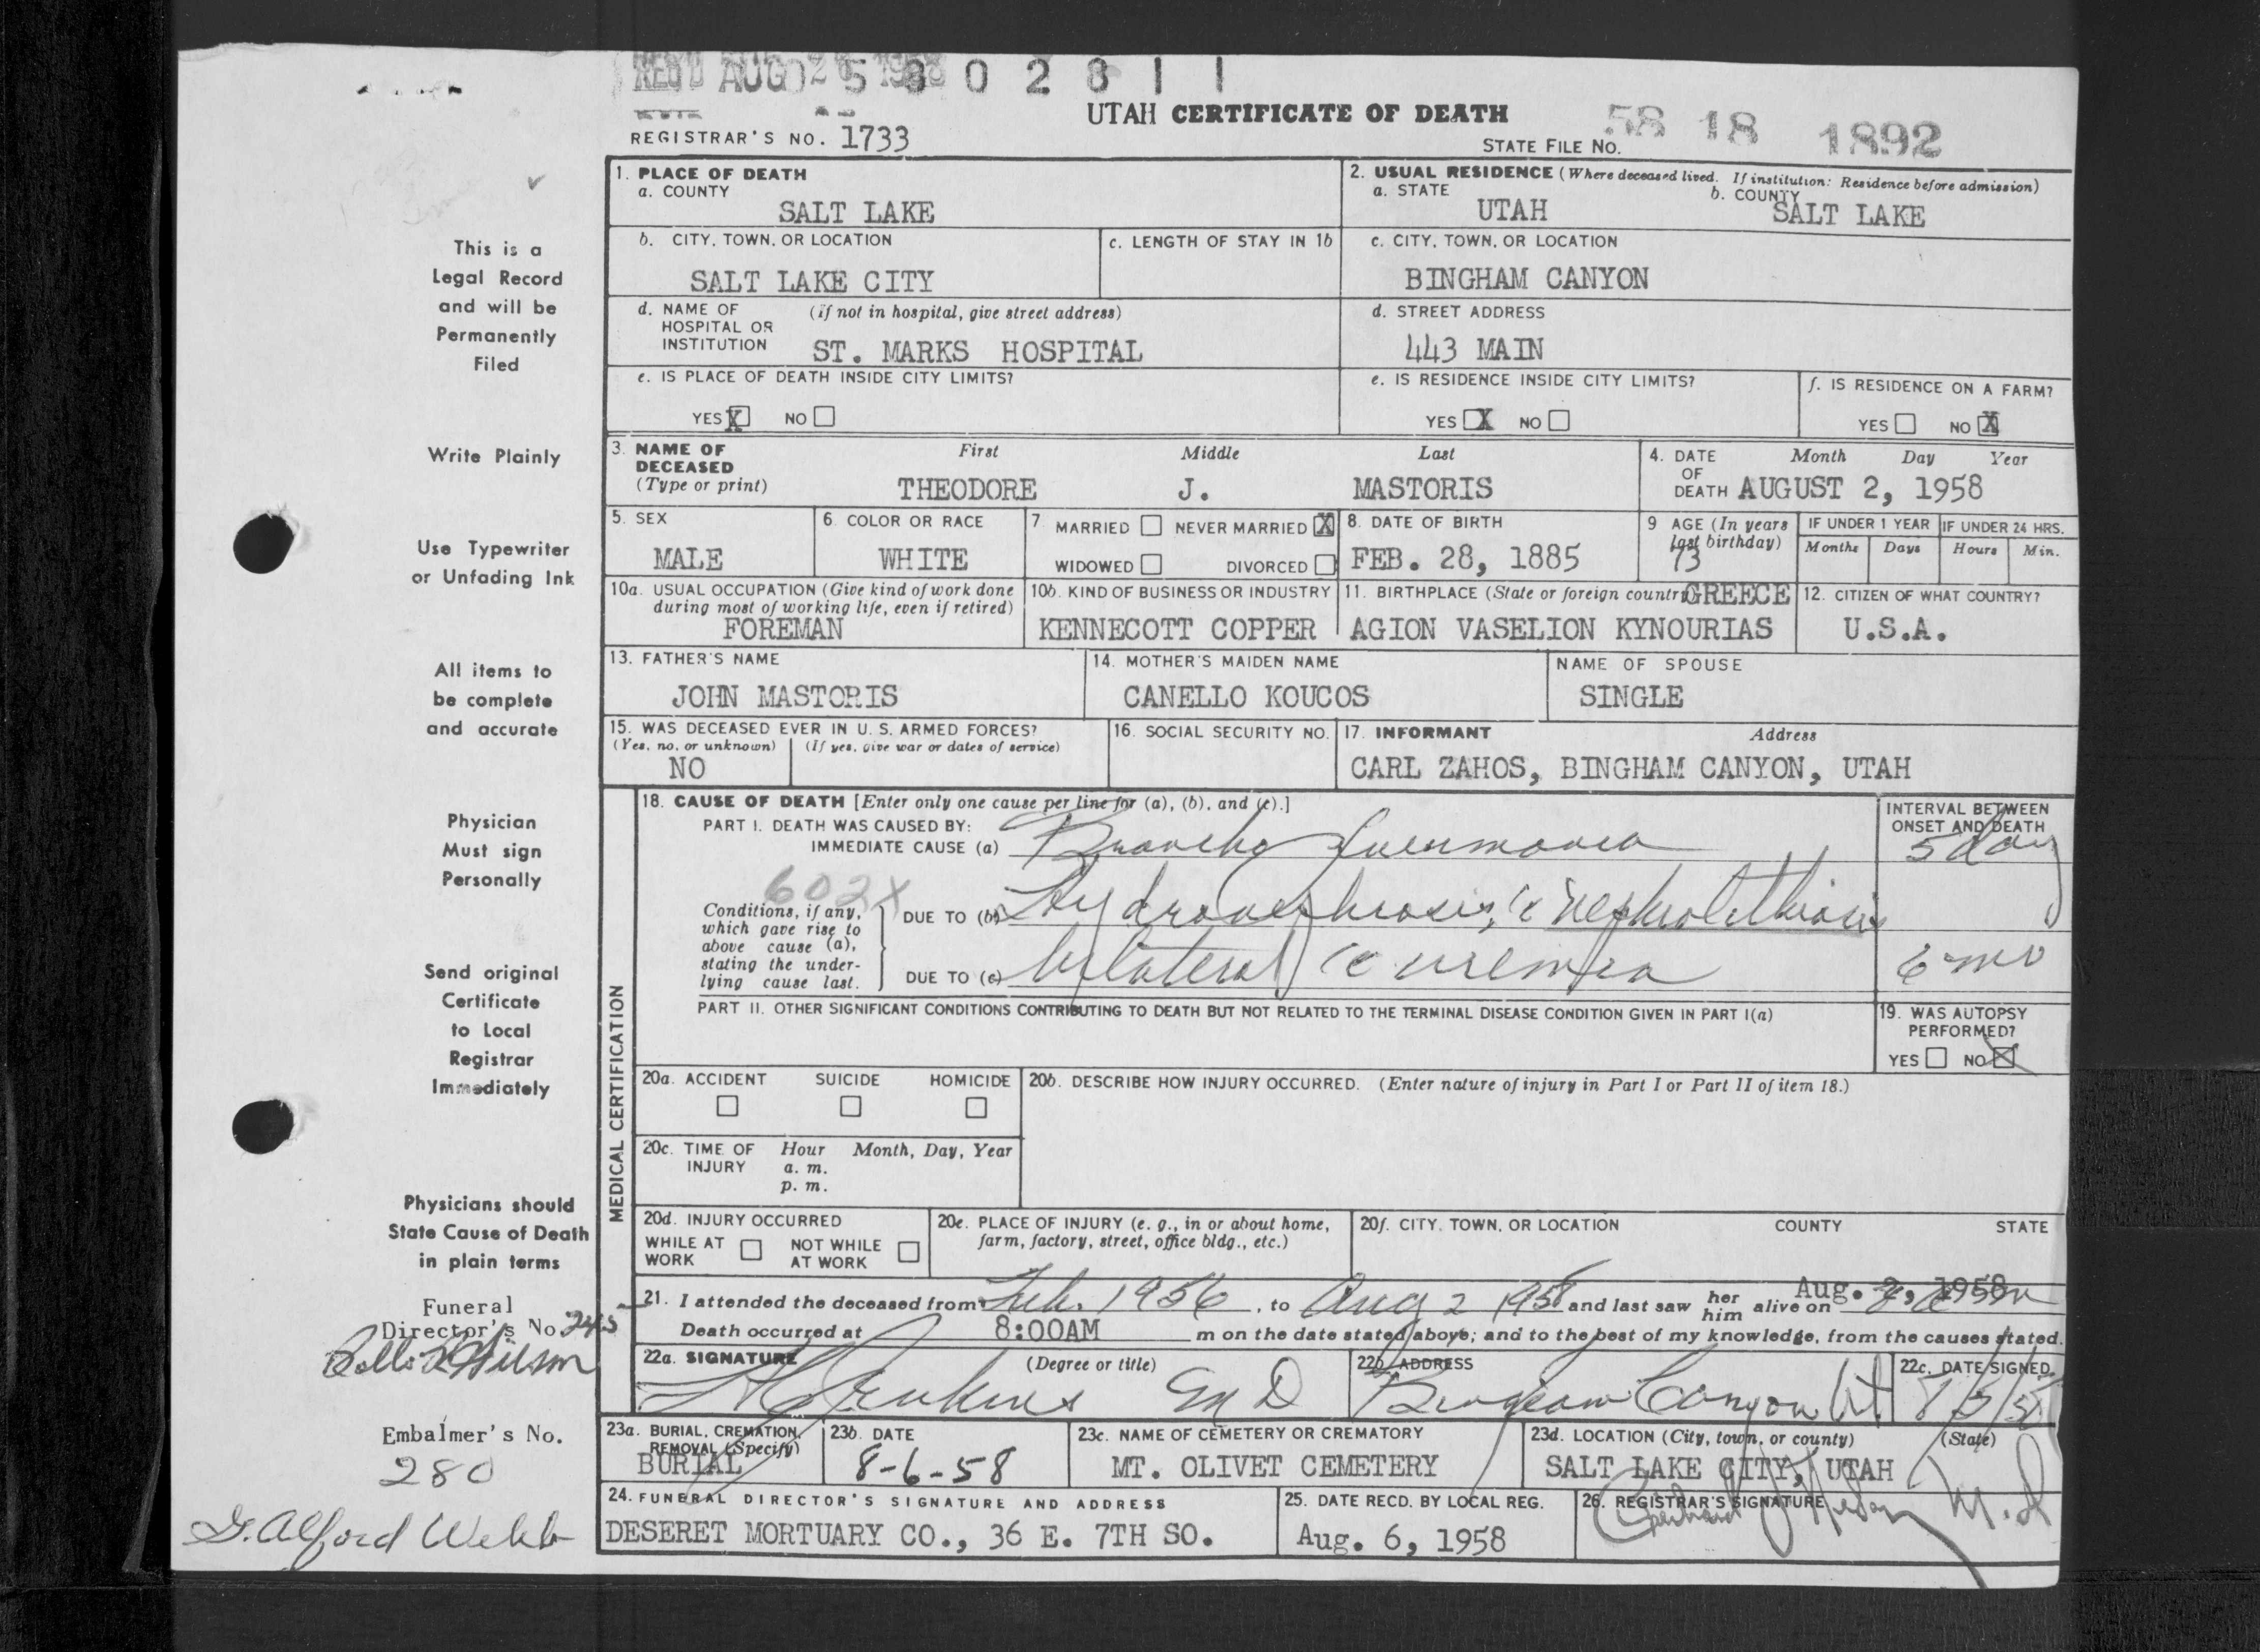 REC'D AUG 26 1958
5 8 0 2 8 1 1
UTAH CERTIFICATE OF DEATH
REGISTRAR'S NO. 1733
STATE FILE No. 58 18 1892
This is a
Legal Record
and will be
Permanently
Filed
Write Plainly
Use Typewriter
or Unfading Ink
All items to
be complete
and accurate
Physician
Must sign
Personally
Send original
Certificate
to Local
Registrar
Immediately
Physicians should
State Cause of Death
in plain terms
Funeral
Director's No. 245
Embalmer's No.
280
G. Alford Webb
1. PLACE OF DEATH
a. COUNTY
SALT LAKE
2. USUAL RESIDENCE (Where deceased lived. If institution: Residence before admission)
a. STATE
UTAH
b. COUNTY
SALT LAKE
b. CITY, TOWN, OR LOCATION
SALT LAKE CITY
c. LENGTH OF STAY IN 1b
c. CITY, TOWN, OR LOCATION
BINGHAM CANYON
d. NAME OF HOSPITAL OR INSTITUTION (If not in hospital, give street address)
ST. MARKS HOSPITAL
d. STREET ADDRESS
443 MAIN
e. IS PLACE OF DEATH INSIDE CITY LIMITS?
YES X NO
e. IS RESIDENCE INSIDE CITY LIMITS?
YES X NO
f. IS RESIDENCE ON A FARM?
YES NO X
3. NAME OF DECEASED (Type or print)
First Middle Last
THEODORE J. MASTORIS
4. DATE OF DEATH Month Day Year
AUGUST 2, 1958
5. SEX
MALE
6. COLOR OR RACE
WHITE
7. MARRIED NEVER MARRIED X
WIDOWED DIVORCED
8. DATE OF BIRTH
FEB. 28, 1885
9 AGE (In years last birthday)
73
IF UNDER 1 YEAR
Months Days
IF UNDER 24 HRS.
Hours Min.
10a. USUAL OCCUPATION (Give kind of work done during most of working life, even if retired)
FOREMAN
10b. KIND OF BUSINESS OR INDUSTRY
KENNECOTT COPPER
11. BIRTHPLACE (State or foreign country) GREECE
AGION VASELION KYNOURIAS
12. CITIZEN OF WHAT COUNTRY?
U.S.A.
13. FATHER'S NAME
JOHN MASTORIS
14. MOTHER'S MAIDEN NAME
CANELLO KOUCOS
NAME OF SPOUSE
SINGLE
15. WAS DECEASED EVER IN U. S. ARMED FORCES?
(Yes, no, or unknown) (If yes, give war or dates of service)
NO
16. SOCIAL SECURITY NO.
17. INFORMANT Address
CARL ZAHOS, BINGHAM CANYON, UTAH
MEDICAL CERTIFICATION
18. CAUSE OF DEATH [Enter only one cause per line for (a), (b), and (c).]
PART I. DEATH WAS CAUSED BY:
IMMEDIATE CAUSE (a) Broncho Pneumonia
INTERVAL BETWEEN ONSET AND DEATH
5 day
602X
Conditions, if any, which gave rise to above cause (a), stating the underlying cause last.
DUE TO (b) Hydronephrosis, c̄ nephrolithiasis
DUE TO (c) bilateral c̄ uremia
6 mo
PART II. OTHER SIGNIFICANT CONDITIONS CONTRIBUTING TO DEATH BUT NOT RELATED TO THE TERMINAL DISEASE CONDITION GIVEN IN PART I(a)
19. WAS AUTOPSY PERFORMED?
YES NO X
20a. ACCIDENT SUICIDE HOMICIDE
20b. DESCRIBE HOW INJURY OCCURRED. (Enter nature of injury in Part I or Part II of item 18.)
20c. TIME OF INJURY Hour Month, Day, Year
a. m.
p. m.
20d. INJURY OCCURRED
WHILE AT WORK NOT WHILE AT WORK
20e. PLACE OF INJURY (e. g., in or about home, farm, factory, street, office bldg., etc.)
20f. CITY, TOWN, OR LOCATION COUNTY STATE
21. I attended the deceased from Feb. 1956, to Aug 2 1958 and last saw her him alive on Aug. 2, 1958
Death occurred at 8:00AM m on the date stated above; and to the best of my knowledge, from the causes stated.
22a. SIGNATURE (Degree or title)
Jenkins M D
22b. ADDRESS
Bingham Canyon Ut
22c. DATE SIGNED
23a. BURIAL, CREMATION, REMOVAL (Specify)
BURIAL
23b. DATE
8-6-58
23c. NAME OF CEMETERY OR CREMATORY
MT. OLIVET CEMETERY
23d. LOCATION (City, town, or county) (State)
SALT LAKE CITY, UTAH
24. FUNERAL DIRECTOR'S SIGNATURE AND ADDRESS
DESERET MORTUARY CO., 36 E. 7TH SO.
25. DATE RECD. BY LOCAL REG.
Aug. 6, 1958
26. REGISTRAR'S SIGNATURE
M.D.